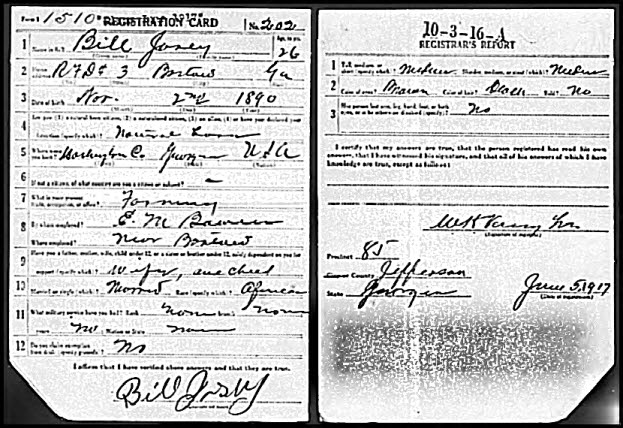 Form 1 1510 REGISTRATION CARD No. 202
1 Name in full Bill Josey Age, in yrs. 26
2 Home address RFD# 3 Bartow Ga
3 Date of birth Nov 2nd 1890
4 Are you (1) a natural born citizen, (2) a naturalized citizen, (3) an alien, (4) or have you declared your intention (specify which)? Natural born
5 Where were you born? Washington Co Georgia USA
6 If not a citizen, of what country are you a citizen or subject?
7 What is your present trade, occupation, or office? Farming
8 By whom employed? E. M.
Where employed? Near
9 Have you a father, mother, wife, child under 12, or a sister or brother under 12, solely dependent on you for
support (specify which)? Wife, one child
10 Married or single (which)? Married Race (specify which)? African
11 What military service have you had? Rank None branch None
years No Nation or State None
12 Do you claim exemption from draft (specify grounds)? No
I affirm that I have verified above answers and that they are true.
Bill Josey
10-3-16-A
REGISTRAR'S REPORT
1 Tall, medium, or short (specify which)? Medium Slender, medium, or stout (which)? Medium
2 Color of eyes? Brown Color of hair? Black Bald? No
3 Has person lost arm, leg, hand, foot, or both eyes, or is he otherwise disabled (specify)? No
I certify that my answers are true, that the person registered has read his own
answers, that I have witnessed his signature, and that all of his answers of which I have
knowledge are true, except as follows:
(Signature of registrar)
Precinct 85
County Jefferson
State Georgia June 5, 1917
(Date of registration)